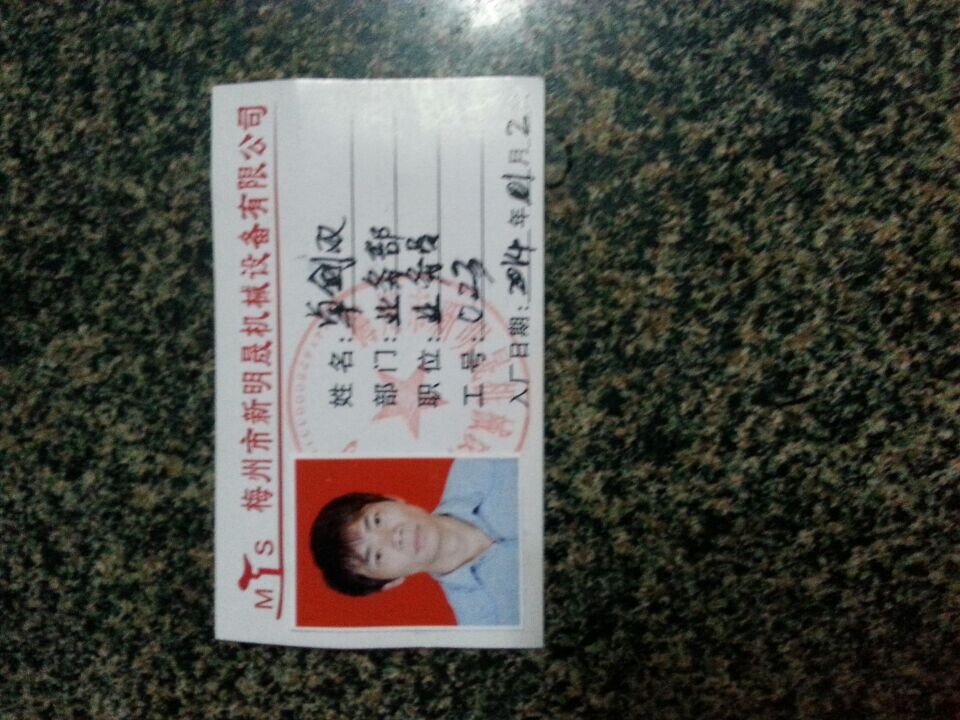 MTS 梅州市新明晟机械设备有限公司
姓名:卓剑双
部门:业务部
职位:业务员
工号:023
入厂日期:2014年01月2